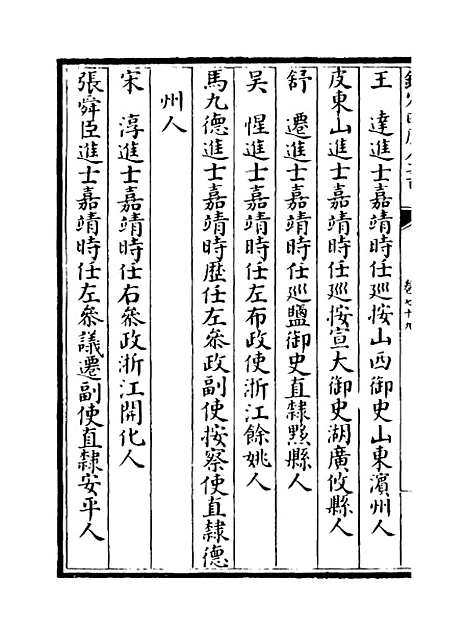 王　達進士嘉靖時任廵按山西御史山東濱州人
皮東山進士嘉靖時任廵按宣大御史湖廣攸縣人
舒　遷進士嘉靖時任廵鹽御史直隸黟縣人
吴　惺進士嘉靖時任左布政使浙江餘姚人
馬九德進士嘉靖時歴任左叅政副使按察使直隸德
州人
宋　淳進士嘉靖時任右叅政浙江開化人
張舜臣進士嘉靖時任左叅議遷副使直隸安平人